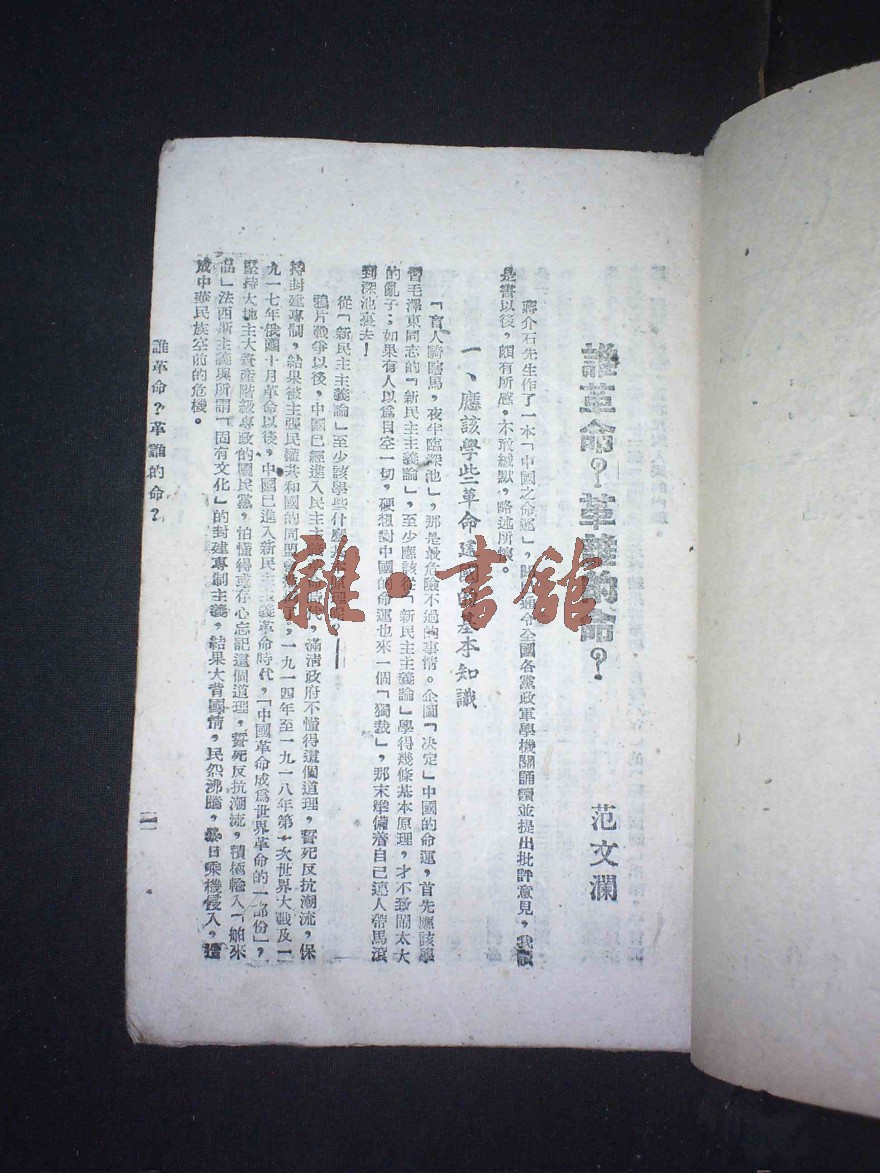 誰革命？革誰的命？
范文瀾
蔣介石先生作了一本「中國之命運」，通令全國各黨政軍學機關誦讀並提出批評意見，我讀
是書以後，頗有所感。不敢緘默，略述所懷。
一、應該學些革命建國的基本知識
「盲人騎瞎馬，夜半臨深池」，那是最危險不過的事情。企圖「決定」中國的命運，首先應該學
習毛澤東同志的「新民主主義論」，至少應該從「新民主主義論」學得幾條基本原理，才不致鬧太大
的亂子；如果有人以為目空一切，硬想對中國的命運也來一個「獨裁」，那末準備着自己連人帶馬滾
到深池裏去！
從「新民主主義論」至少該學些什麼基本原理呢？——
鴉片戰爭以後，中國已經進入民主主義革命時代，滿清政府不懂得這個道理，誓死反抗潮流，保
持封建專制，結果被主張民權共和國的同盟會推倒了。一九一四年至一九一八年第一次世界大戰及一
九一七年俄國十月革命以後，中國已進入新民主主義革命時代，「中國革命成爲世界革命的一部份」，
堅持大地主大資產階級專政的國民黨，怕懂得或存心忘記這個道理，誓死反抗潮流，積極輸入「舶來
品」法西斯主義與所謂「固有文化」的封建專制主義，結果大背國情，民怨沸騰，暴日乘機侵入，造
成中華民族空前的危機。
誰革命？革誰的命？
一
雜·書館